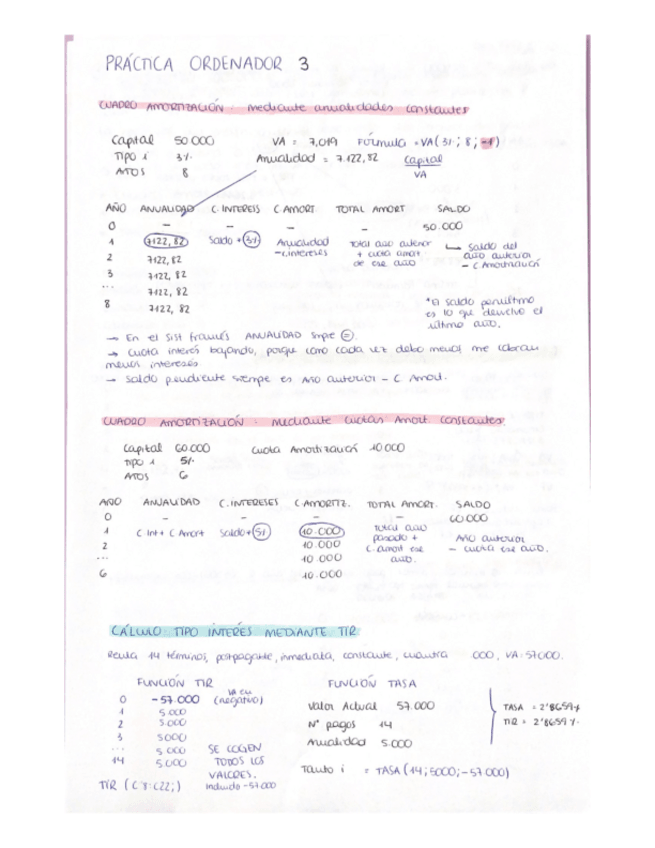 PRÁCTICA ORDENADOR 3
CUADRO AMORTIZACIÓN: mediante anualidades constantes
Capital 50.000 VA = 7,019 FÓRMULA =VA(3%; 8; -1)
TIPO i 3% Anualidad = 7.122,82 Capital
AÑOS 8 VA
AÑO ANUALIDAD C. INTERESES C. AMORT. TOTAL AMORT SALDO
0 - - - - 50.000
1 7122,82 Saldo * 3% Anualidad Total año anterior Saldo del
2 7122,82 - c.intereses + cuota amort año anterior
3 7122,82 de ese año - C Amortización
... 7122,82
8 7122,82
*El saldo penúltimo
es lo que devuelvo el
último año.
→ En el sist francés ANUALIDAD smpre =.
→ Cuota interés bajando, porque como cada vez debo menos, me cobran
menos intereses
→ Saldo pendiente siempre es Año anterior - C Amort.
CUADRO AMORTIZACIÓN: mediante cuotas Amort. constantes
Capital 60.000 Cuota Amortización 10.000
TIPO i 5%
AÑOS 6
AÑO ANUALIDAD C. INTERESES C. AMORTIZ. TOTAL AMORT. SALDO
0 - - - - 60.000
1 C Int + C Amort Saldo * 5% 10.000 Total año Año anterior
2 10.000 pasado + - cuota ese año.
... 10.000 C. amort ese
6 10.000 año.
CÁLCULO TIPO INTERÉS MEDIANTE TIR
Renta 14 términos, postpagable, inmediata, constante, cuantía .000, VA: 57.000.
FUNCIÓN TIR FUNCIÓN TASA
0 -57.000 VA en (negativo) Valor Actual 57.000 TASA = 2'8659%
1 5.000 Nº pagos 14 TIR = 2'8659%
2 5.000 Anualidad 5.000
3 5.000
... 5.000 SE COGEN
14 5.000 TODOS LOS
VALORES. Tanto i = TASA (14; 5000; -57.000)
TIR (C8:C22;) Incluido -57.000